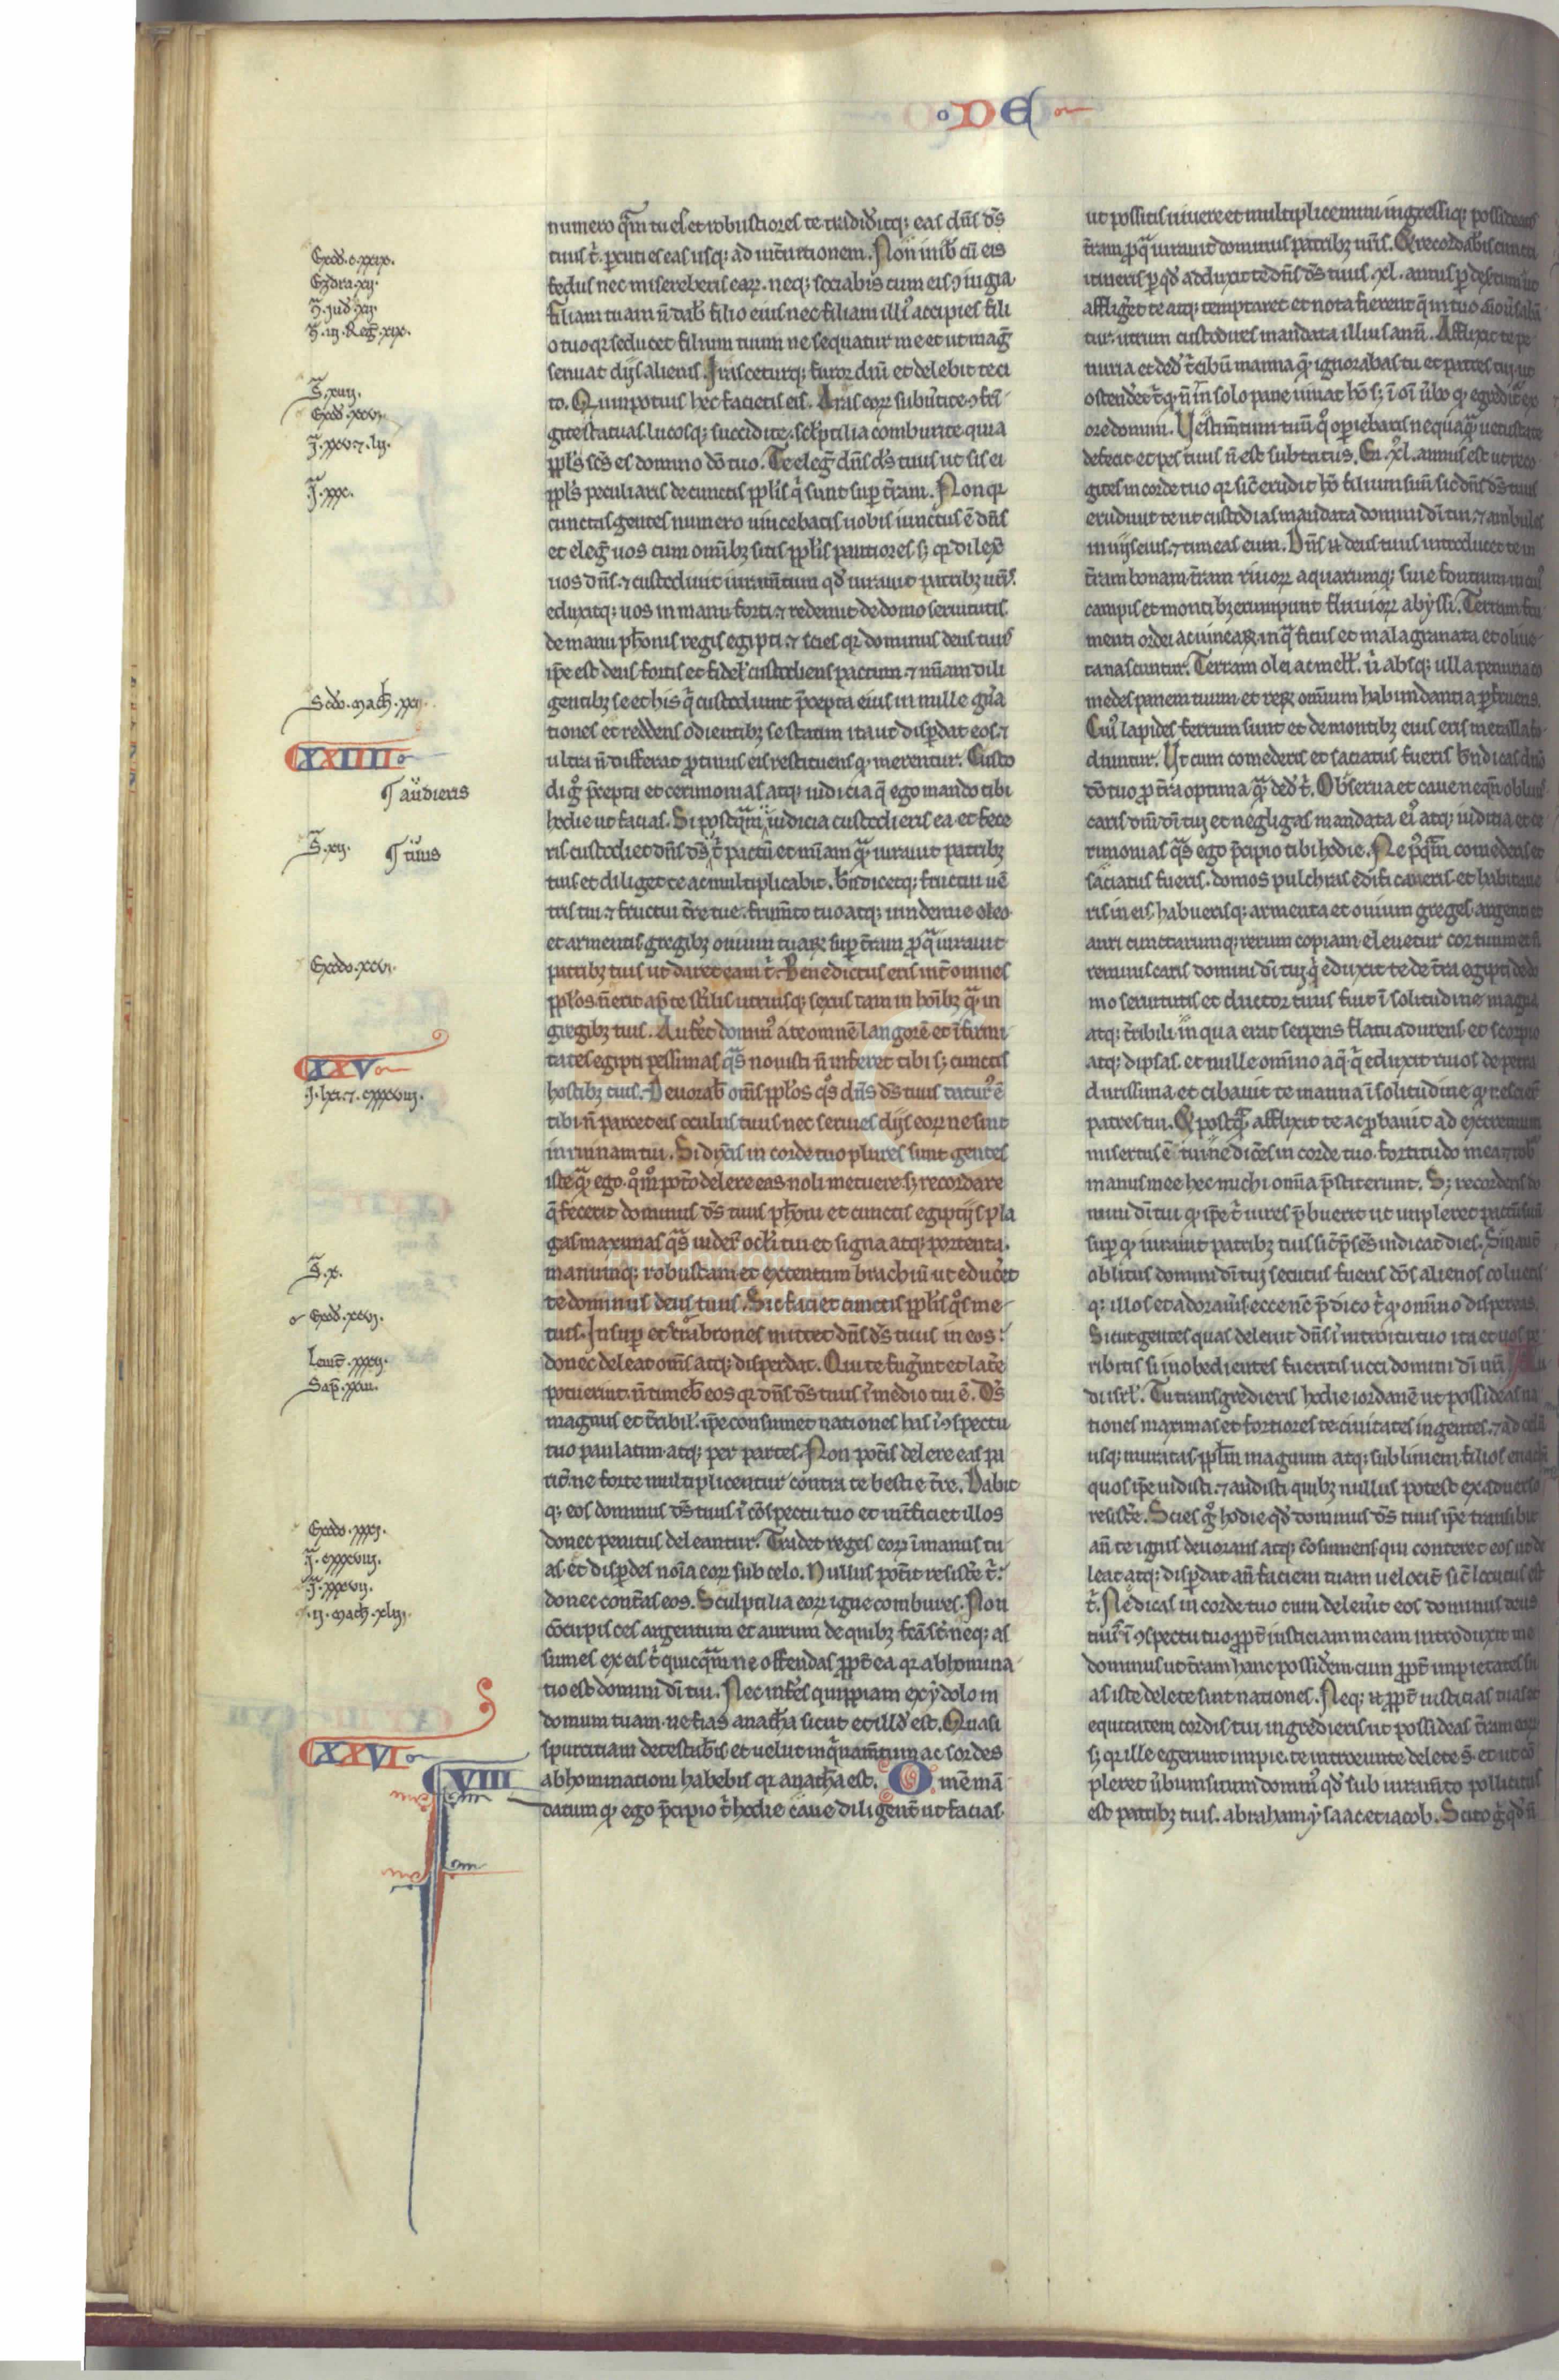 DE
Exod. c. xxix.
Ezdra. xij.
h̄. jud̄. xij.
h̄. iij. Reḡ. xix.
S̄. xviij.
Exod̄. xxvi.
J̄. xxv. ⁊. lij.
J̄. xxx.
Sc̄do. mach̄. xxij.
XXIIII
¶ audieris
S̄. xij. ¶ tuus
Exodo. xxvi.
XXV
J. lxi. ⁊. cxxxviij.
S̄. x.
Exod̄. xxvij.
Leuit̄. xxxij.
Sap̄. xxiii.
Exodo. xxxij.
J̄. cxxxviij.
J̄. xxxvij.
ij. mach̄. xliij.
XXVI
VIII
numero q̄m tu es et robustiores te tradid̓itq; eas dn̄s ds̄
tuus t̄. percuties eas usq; ad int̄nitionem. Non inib̄ cū eis
fedus nec misereberis eaꝝ. neq; sociabis cum eis ꝯiugia
filiam tuam n̄ dab̄ filio eius nec filiam illi᷒ accipies fili
o tuo qꝛ seducet filium tuum ne sequatur me et ut maḡ
seruiat dijs alienis. Irasceturq; furor dn̄i et delebit te ci
to. Quin potius hec facietis eis. Aras eoꝝ subu̓tite ꝯfrī
gite statuas. lucosq; succidite. scl̓ptilia comburite. quia
ppl̓s sc̄s es domino dō tuo. Te eleḡ dn̄s ds̄ tuus ut sis ei
ppl̓s peculiaris de cunctis ppl̓is q̄ sunt suꝑ t̄ram. Non qꝛ
cunctas gentes numero uincebatis uobis iunctus ē dn̄s
et eleḡ uos cum omībꝫ sitis ppl̓is pautiores sꝫ qꝛ dilex̄
uos dn̄s. ⁊ custodiuit iuram̄tum qd̓ iurauit patribꝫ ur̄is.
eduxitq; uos in manu forti. ⁊ redemit de domo seruitutis.
de manu ph̄onis regis egipti. ⁊ scies qꝛ dominus deus tuus
ip̄e est deus fortis et fidel̓ custodiens pactum. ⁊ mīam dili
gentibꝫ se et his q̄ custodiunt p̄cepta eius in mille gn̄a
tiones et reddens odientibꝫ se statim ita ut disꝑdat eos. ⁊
ultra n̄ differat ꝓtinus eis restituens q̄ merentur. Custo
di g̊ p̄cepta et cerimonias atq; iudicia q̄ ego mando tibi
hodie ut facias. Si postq̄m iudicia custodieris ea et fece
ris custodiet dn̄s ds̄ t̄ pactū et mīam q̄m iurauit patribꝫ
tuis et diliget te ac multiplicabit. bn̄dicetq; fructui uē
tris tui. ⁊ fructui t̄re tue. frum̄to tuo atq; uindemie oleo.
et armentis gregibꝫ ouium tuaꝝ suꝑ t̄ram ꝓ q̄ iurauit
patribꝫ tuis ut daret eam t̄. Benedictus eris int̄ omnes
ppl̓os n̄ erit ap̄ te st̄ilis utriusq; sexus tam in hoībꝫ q̄ in
gregibꝫ tuis. Aufēt domin᷒ a te omnē langorē et īfirmi
tates egipti pessimas q̄s nouisti n̄ inferet tibi sꝫ cunctis
hostibꝫ tuis. Deuorab̄ om̄s ppl̓os q̊s dn̄s ds̄ tuus datur᷒ ē
tibi n̄ parcet eis oculus tuus nec seruies dijs eoꝝ ne sint
in ruinam tui. Si dix̄is in corde tuo plures sunt gentes
iste q̄ ego. q̊m̊ pot̄o delere eas noli metuere sꝫ recordare
q̄ fecerit dominus ds̄ tuus ph̄oni et cunctis egiptijs pla
gas maximas q̄s uider̄ ocl̓i tui et signa atq; portenta.
manumq; robustam et extentum brachiū ut educ̄et
te dominus deus tuus. Sic faciet cunctis ppl̓is q̊s me
tuis. Insuꝑ et crabrones mittet dn̄s ds̄ tuus in eos.
donec deleat om̄s atq; disperdat. Qui te fug̓int et lat̄e
potuerint. n̄ timeb̄ eos qꝛ dn̄s ds̄ tuus ī medio tui ē. Ds̄
magnus et t̄ribil̓. ip̄e consumet nationes has ī ꝯspectu
tuo paulatim atq; per partes. Non pot̄is delere eas pa
rit̄. ne forte multiplicentur contra te bestie t̄re. Dabit
q; eos dominus ds̄ tuus ī cōspectu tuo et int̄ficiet illos
donec penitus deleantur. Tradet reges eoꝝ ī manus tu
as. et disꝑdes noīa eoꝝ sub celo. Nullus pot̄it resist̄e t̄.
donec cont̄as eos. Sculptilia eoꝝ igne combures. Non
cōcupisces argentum et aurum de quibꝫ fc̄a st̄. neq; as
sumes ex eis t̄ quicq̄m ne offendas ꝓpt̄ ea qꝛ abhomina
tio est domini dī tui. Nec infēs quippiam ex ydolo in
domum tuam. ne fias anath̄a sicut et illd̓ est. Quasi
spurcitiam detestab̓is et uelut inq̓nam̄tum ac sordes
abhominationi habebis qꝛ anath̄a est. Omē mā
datum q̄ ego p̄cipio t̄ hodie caue diligent̄ ut facias.
ut possitis uiuere et multiplicemini ingressiq; possideatis
t̄ram ꝓ q̄ iurauit dominus patribꝫ ur̄is. Et recordab̄is cuncti
itineris ꝑ qd̓ adduxit te dn̄s ds̄ tuus. xl. annis ꝑ desertum ut
afflig̓et te atq; temptaret et nota fierent q̄ in tuo aīo u̓saban
tur. utrum custodires mandata illius an n̄. Afflixit te pe
nuria et ded̓ t̄ cibū manna q̄ ignorabas tu et patres tui. ut
ostend̓et t̄ q̄ n̄ in solo pane uiuat hō sꝫ ī oī u̓bo q̄ egredit̄ ex
ore domini. Uestim̄tum tuū q̊ oꝑiebaris nequaq̄ uetustate
defecit et pes tuus n̄ est subtritus. En. xl. annus est ut reco
gites in corde tuo qꝛ sic̄ erudit hō filium suū sic dn̄s ds̄ tuus
erudiuit te ut custodias mandata domini dī tui. ⁊ ambules
in uijs eius. ⁊ timeas eum. Dn̄s n̄ deus tuus introducet te in
t̄ram bonam. t̄ram riuoꝝ aquarumq; siue fontium. in cui᷒
campis et montibꝫ erumpunt fluuioꝝ abyssi. Terram fru
menti ordei ac uineaꝝ. in q̄ ficus et malagranata et oliue
ta nascuntur. Terram olei ac mell̓. u̓ absq; ulla penuria co
medes panem tuum et reꝝ omnium habundantia ꝑfrueris.
Cui᷒ lapides ferrum sunt et de montibꝫ eius eris metalla fo
diuntur. Ut cum comederis et saciatus fueris bn̄dicas dn̄o
dō tuo ꝓ t̄ra optima q̄m ded̓ t̄. Obserua et caue neqn̄ obliui
caris dn̄i dī tui et negligas mandata ei᷒ atq; iudicia et ce
rimonias q̄s ego p̄cipio tibi hodie. Ne p᷒q̄m comederis et
saciatus fueris. domos pulchras edificaueris. et habitaue
ris in eis. habuerisq; armenta et ouium greges. argenti et
auri cunctarumq; rerum copiam. eleuetur cor tuum et n̄
reminiscaris domini dī tui q̄ eduxit te de t̄ra egipti de do
mo seruitutis et ductor tuus fuit ī solitudine magna
atq; t̄ribili in qua erat serpens flatu adurens et scorpio
atq; dipsas. et nulle omnino aq̄. q̄ eduxit riuos de petra
durissima et cibauit te manna ī solitudine q̄ nescier̄
patres tui. Et postq̄ afflixit te ac ꝓbauit ad extremum
misertus ē tui ne dic̄es in corde tuo. fortitudo mea ⁊ rob᷒
manus mee hec michi omīa p̄stiterunt. Sꝫ recorderis do
mini dī tui q̄ ip̄e t̄ uires p̄buerit ut impleret pactū suū
suꝑ q̄ iurauit patribꝫ tuis sic̄ p̄sēs indicat dies. Sin aut̄
oblitus domini dī tui secutus fueris dōs alienos colueris
q; illos et adorau̓is ecce nc̄ p̄dico t̄ q̄ omīno dispereas.
Sicut gentes quas deleuit dn̄s ī introitu tuo ita et uos pe
ribitis si inobedientes fueritis uoci domini dī ur̄i. Au
di isrl̓. Tu transgredieris hodie iordanē ut possideas na
tiones maximas et fortiores te. ciuitates ingentes. ⁊ ad celū
usq; muratas ppl̓m magnum atq; sublimem filios enachi
quos ip̄e uidisti. ⁊ audisti quibꝫ nullus potest ex aduerso
resist̄e. Scies g̊ hodie qd̓ dominus ds̄ tuus ip̄e transibit
an̄ te ignis deuorans atq; cōsumens qui conteret eos ut de
leat atq; disꝑdat an̄ faciem tuam uelocit̄ sic̄ locutus est
t̄. Ne dicas in corde tuo cum deleu̓it eos dominus deus
tuus ī ꝯspectu tuo ꝓpt̄ iusticiam meam introduxit me
dominus ut t̄ram hanc possid̓em. cum ꝓpt̄ impietates su
as iste delete sint nationes. Neq; n̄ ꝓpt̄ iusticias tuas et
equitatem cordis tui ingredieris ut possideas t̄ram eoꝝ
sꝫ qꝛ ille egerunt impie. te introeunte delete s̄. et ut cō
pleret u̓bum suum domin᷒ qd̓ sub iuram̄to pollicitus
est patribꝫ tuis. abraham ysaac et iacob. Scito g̊ qd̓ n̄